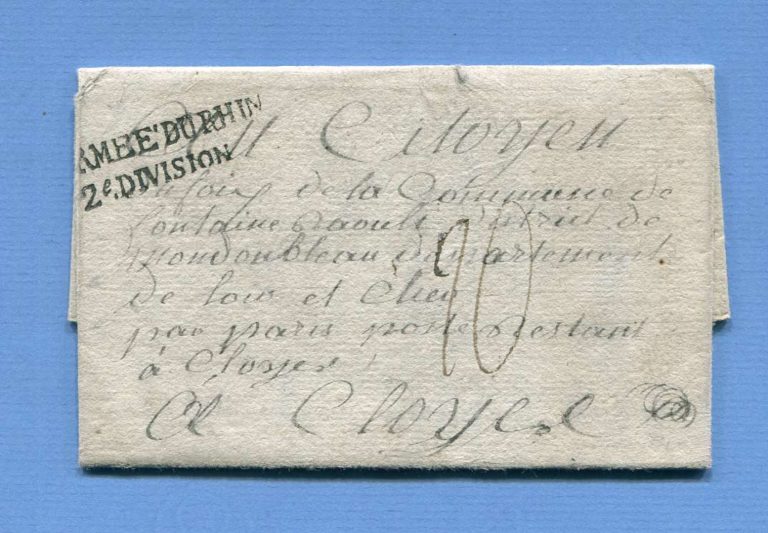 ARMEE DU RHIN
2e. DIVISION
Au Citoyen
de la Commune de
fontaine Raoult district de
Mondoubleau departement
de loir et Cher
par paris poste restant
à Cloyes
A Cloyes